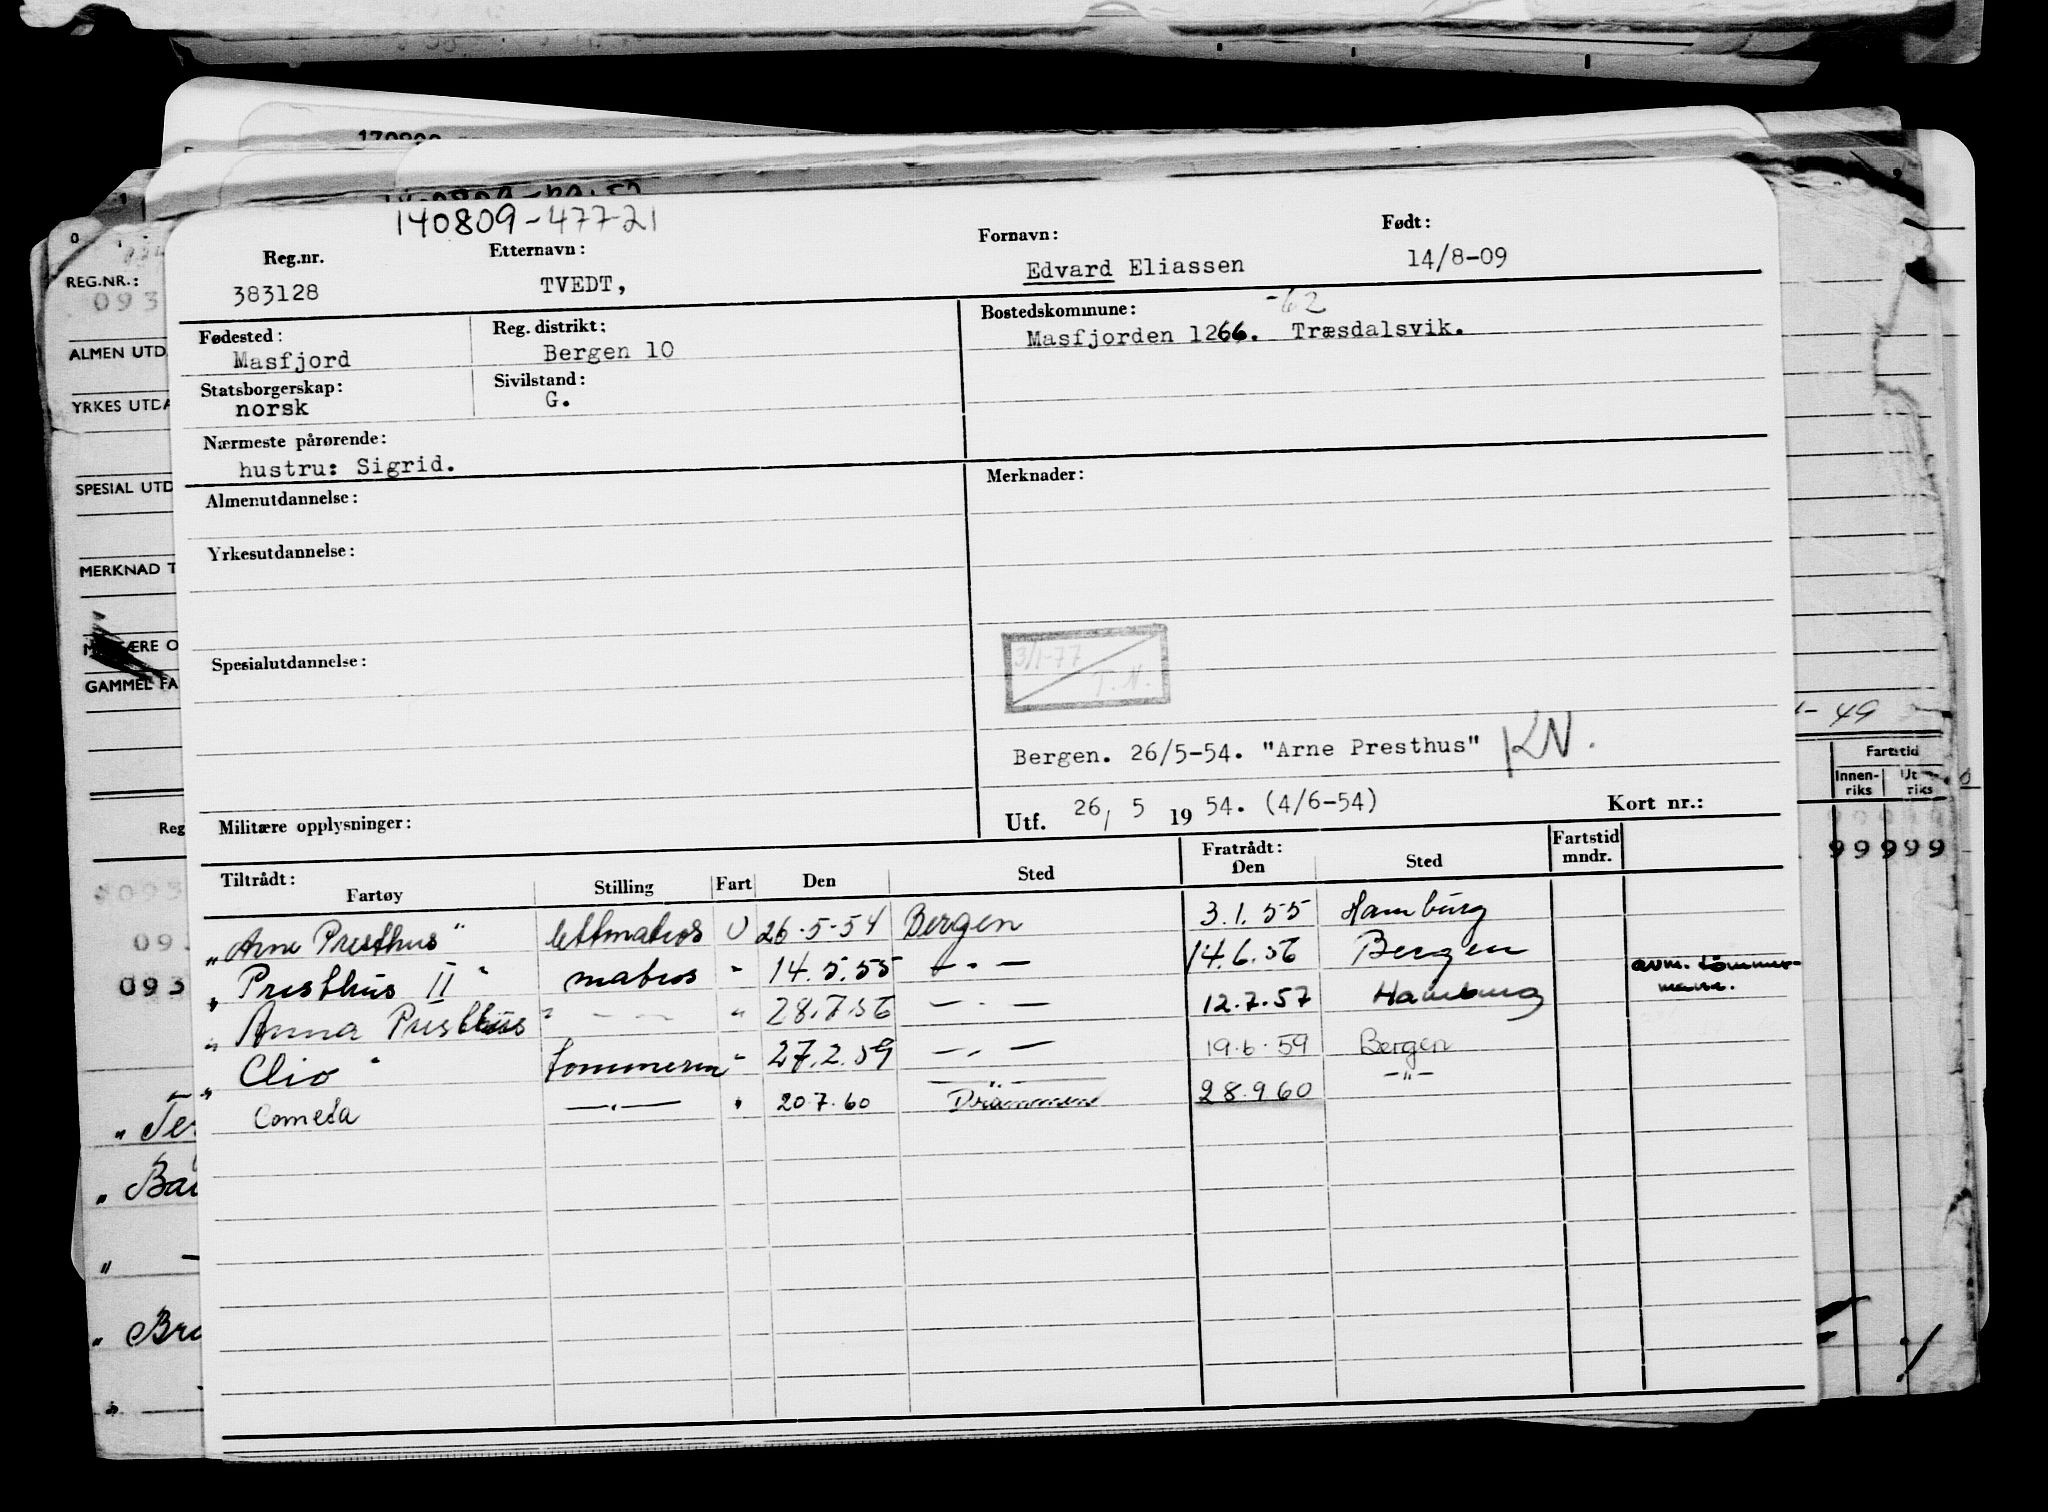 140809-47721
Reg.nr. Etternavn: Fornavn: Født:
383128 TVEDT, Edvard Eliassen 14/8-09
Fødested: Reg. distrikt: Bostedskommune: -62
Masfjord Bergen 10 Masfjorden 1266. Træsdalsvik.
Statsborgerskap: Sivilstand:
norsk G.
Nærmeste pårørende:
hustru: Sigrid.
Almenutdannelse: Merknader:
Yrkesutdannelse:
Spesialutdannelse:
3/1-77
T.N.
Bergen. 26/5-54. "Arne Presthus" KN.
Militære opplysninger: Utf. 26, 5 19 54. (4/6-54) Kort nr.:
Tiltrådt: Fratrådt: Fartstid
Fartøy Stilling Fart Den Sted Den Sted mndr.
"Arne Presthus" lettmatros U 26.5.54 Bergen 3.1.55 Hamburg
" Presthus II " matros " 14.5.55 -"- 14.6.56 Bergen
" Anna Presthus " -"- " 28.7.56 -"- 12.7.57 Hamburg avm. tømmermann.
" Clio " tømmerm " 27.2.59 -"- 19.6.59 Bergen
" Cometa -"- " 20.7.60 Drammen 28.9.60 -"-
REG.NR.:
093
ALMEN UTD
YRKES UTDA
SPESIAL UTD
MERKNAD T
ÆRE O
GAMMEL FA
Reg
093
093
- 49
Fartstid
Innenriks Utriks
99999